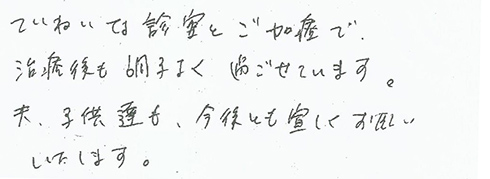 ていねいな診察とご加療で、
治療後も調子よく過ごせています。
夫、子供達も、今後とも宜しくお願い
いたします。